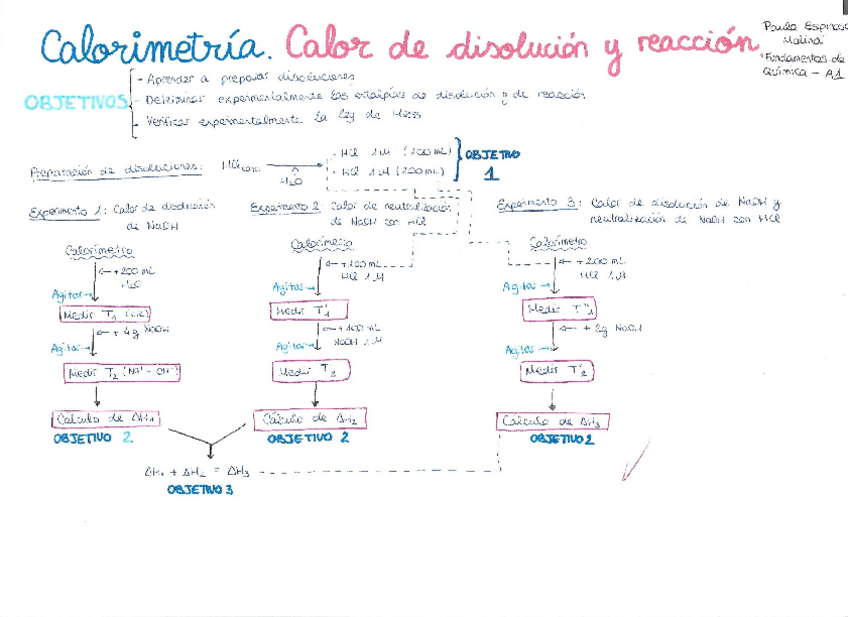 Calorimetría. Calor de disolución y reacción
Paula Espinosa
Molina
"Fundamentos de
Química - A1
OBJETIVOS
- Aprender a preparar disoluciones
- Determinar experimentalmente las entalpías de disolución y de reacción
- Verificar experimentalmente la ley de Hess
Preparación de disoluciones: HCl conc.
H2O
- HCl 1M (100 mL)
- HCl 1M (200 mL)
OBJETIVO
1
Experimento 1: Calor de disolución
de NaOH
Calorímetro
+200 mL
H2O
Agitar
Medir T1
+ 4g NaOH
Agitar
Medir T2 (Na+ - OH-)
Cálculo de ΔH1
OBJETIVO 2
Experimento 2: Calor de neutralización
de NaOH con HCl
Calorímetro
+100 mL
HCl 1M
Agitar
Medir T'1
+100 mL
NaOH 1M
Agitar
Medir T'2
Cálculo de ΔH2
OBJETIVO 2
Experimento 3: Calor de disolución de NaOH y
neutralización de NaOH con HCl
Calorímetro
+200 mL
HCl 1M
Agitar
Medir T''1
+ 2g NaOH
Agitar
Medir T''2
Cálculo de ΔH3
OBJETIVO 2
ΔH1 + ΔH2 = ΔH3
OBJETIVO 3